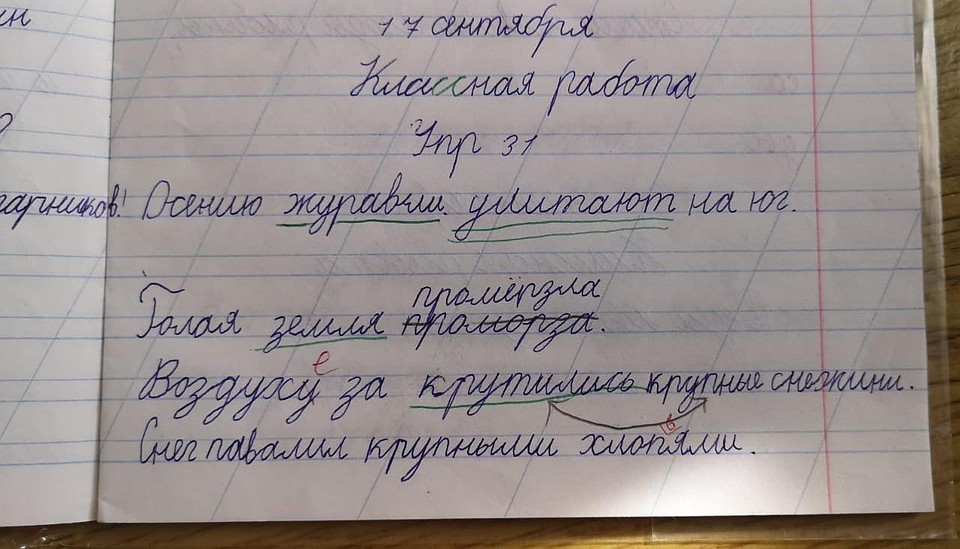 ин
17 сентября
Классная работа
Упр 31
гарников! Осению журавли улитают на юг.
промёрзла
Голая земля проморза.
е
Воздуху за крутились крупные снежкини.
в
Снег павалил крупными хлопями.